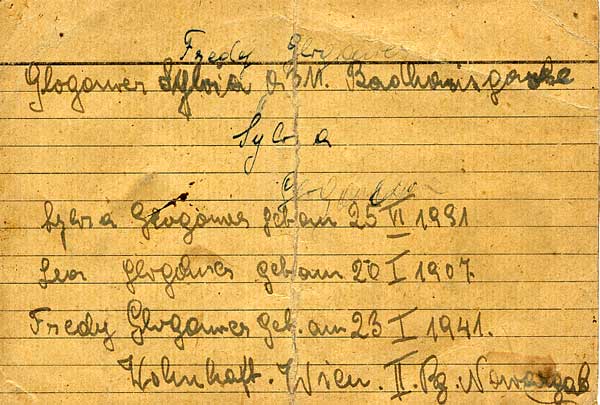 Fredy Glogauer
Glogauer Sylvia
Sylvia
Glogauer
Sylvia Glogauer geb am 25 VI 1931
Leon Glogauer geb am 20 I 1907.
Fredy Glogauer geb. am 23 I 1941.
Wohnhaft. Wien. II. Bz.